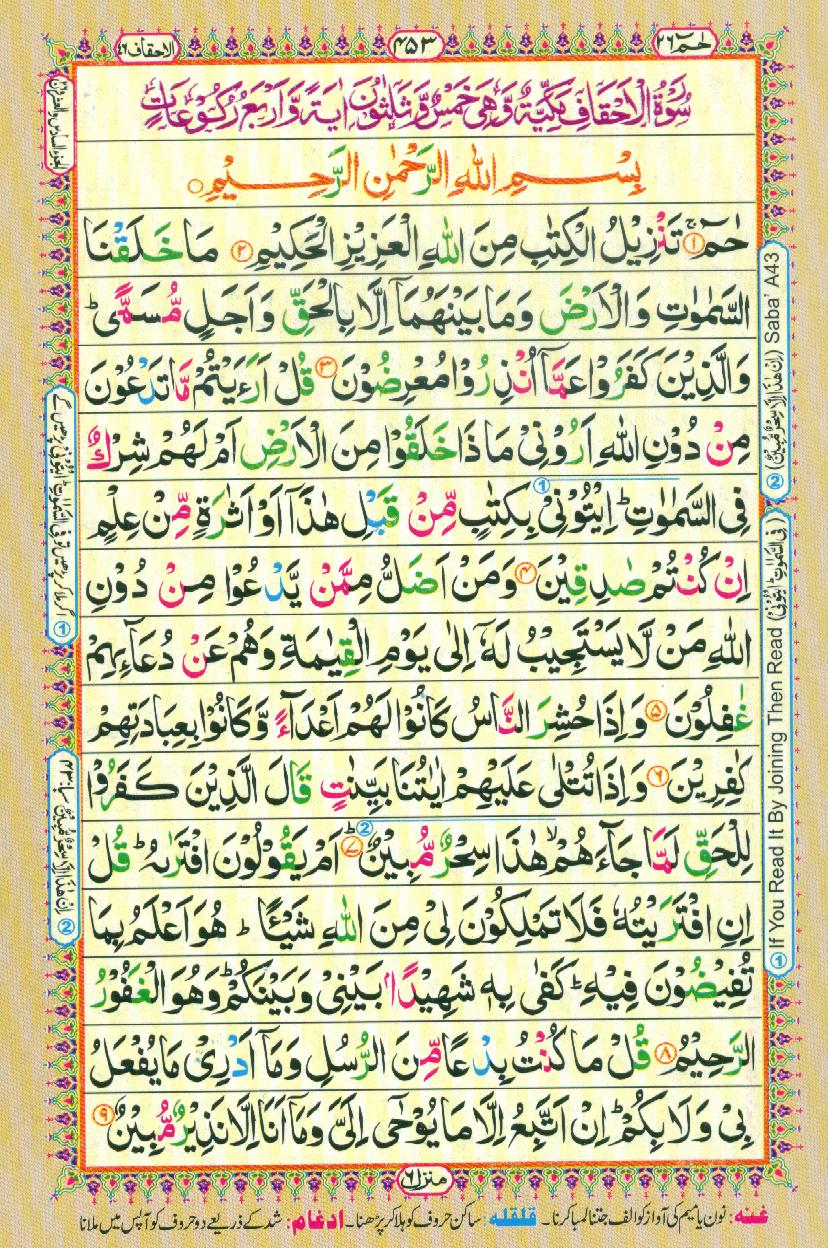 حٰمٓ ٢٦
٤٥٣
الاحقاف ٤٦
سُوْرَةُ الْاَحْقَافِ مَكِّيَّةٌ وَّهِيَ خَمْسٌ وَّثَلٰثُوْنَ اٰيَةً وَّاَرْبَعُ رُكُوْعَاتٍ
بِسْمِ اللّٰهِ الرَّحْمٰنِ الرَّحِيْمِ ○
حٰمٓ ۚ ① تَنْزِيْلُ الْكِتٰبِ مِنَ اللّٰهِ الْعَزِيْزِ الْحَكِيْمِ ② مَا خَلَقْنَا
السَّمٰوٰتِ وَالْاَرْضَ وَمَا بَيْنَهُمَآ اِلَّا بِالْحَقِّ وَاَجَلٍ مُّسَمًّى ؕ
وَالَّذِيْنَ كَفَرُوْا عَمَّآ اُنْذِرُوْا مُعْرِضُوْنَ ③ قُلْ اَرَءَيْتُمْ مَّا تَدْعُوْنَ
مِنْ دُوْنِ اللّٰهِ اَرُوْنِيْ مَاذَا خَلَقُوْا مِنَ الْاَرْضِ اَمْ لَهُمْ شِرْكٌ
فِي السَّمٰوٰتِ ؕ اِيْتُوْنِيْ بِكِتٰبٍ مِّنْ قَبْلِ هٰذَآ اَوْ اَثٰرَةٍ مِّنْ عِلْمٍ
اِنْ كُنْتُمْ صٰدِقِيْنَ ④ وَمَنْ اَضَلُّ مِمَّنْ يَّدْعُوْا مِنْ دُوْنِ
اللّٰهِ مَنْ لَّا يَسْتَجِيْبُ لَهٗٓ اِلٰى يَوْمِ الْقِيٰمَةِ وَهُمْ عَنْ دُعَآىِٕهِمْ
غٰفِلُوْنَ ⑤ وَاِذَا حُشِرَ النَّاسُ كَانُوْا لَهُمْ اَعْدَآءً وَّكَانُوْا بِعِبَادَتِهِمْ
كٰفِرِيْنَ ⑥ وَاِذَا تُتْلٰى عَلَيْهِمْ اٰيٰتُنَا بَيِّنٰتٍ قَالَ الَّذِيْنَ كَفَرُوْا
لِلْحَقِّ لَمَّا جَآءَهُمْ ۙ هٰذَا سِحْرٌ مُّبِيْنٌ ؕ ⑦ اَمْ يَقُوْلُوْنَ افْتَرٰىهُ ؕ قُلْ
اِنِ افْتَرَيْتُهٗ فَلَا تَمْلِكُوْنَ لِيْ مِنَ اللّٰهِ شَيْـًٔا ؕ هُوَ اَعْلَمُ بِمَا
تُفِيْضُوْنَ فِيْهِ ؕ كَفٰى بِهٖ شَهِيْدًۢا بَيْنِيْ وَبَيْنَكُمْ ؕ وَهُوَ الْغَفُوْرُ
الرَّحِيْمُ ⑧ قُلْ مَا كُنْتُ بِدْعًا مِّنَ الرُّسُلِ وَمَآ اَدْرِيْ مَا يُفْعَلُ
بِيْ وَلَا بِكُمْ ؕ اِنْ اَتَّبِعُ اِلَّا مَا يُوْحٰٓى اِلَيَّ وَمَآ اَنَا اِلَّا نَذِيْرٌ مُّبِيْنٌ ⑨
① If You Read It By Joining Then Read (فِي السَّمٰوٰتِ ايْتُوْنِيْ) ② (اِنْ هٰذَا اِلَّا سِحْرٌ مُّبِيْنٌ) Saba' A43
الجزء السادس والعشرون
① اگر ملا کر پڑھیں تو فِي السَّمٰوٰتِ ايْتُوْنِيْ پڑھیں گے
② اِنْ هٰذَا اِلَّا سِحْرٌ مُّبِيْنٌ سبا: ٤٣
منزل ٦
غنه: نون یا میم کی آواز کو الف جتنا لمبا کرنا۔ قلقله: ساکن حروف کو ہلا کر پڑھنا۔ ادغام: شد کے ذریعے دو حروف کو آپس میں ملانا